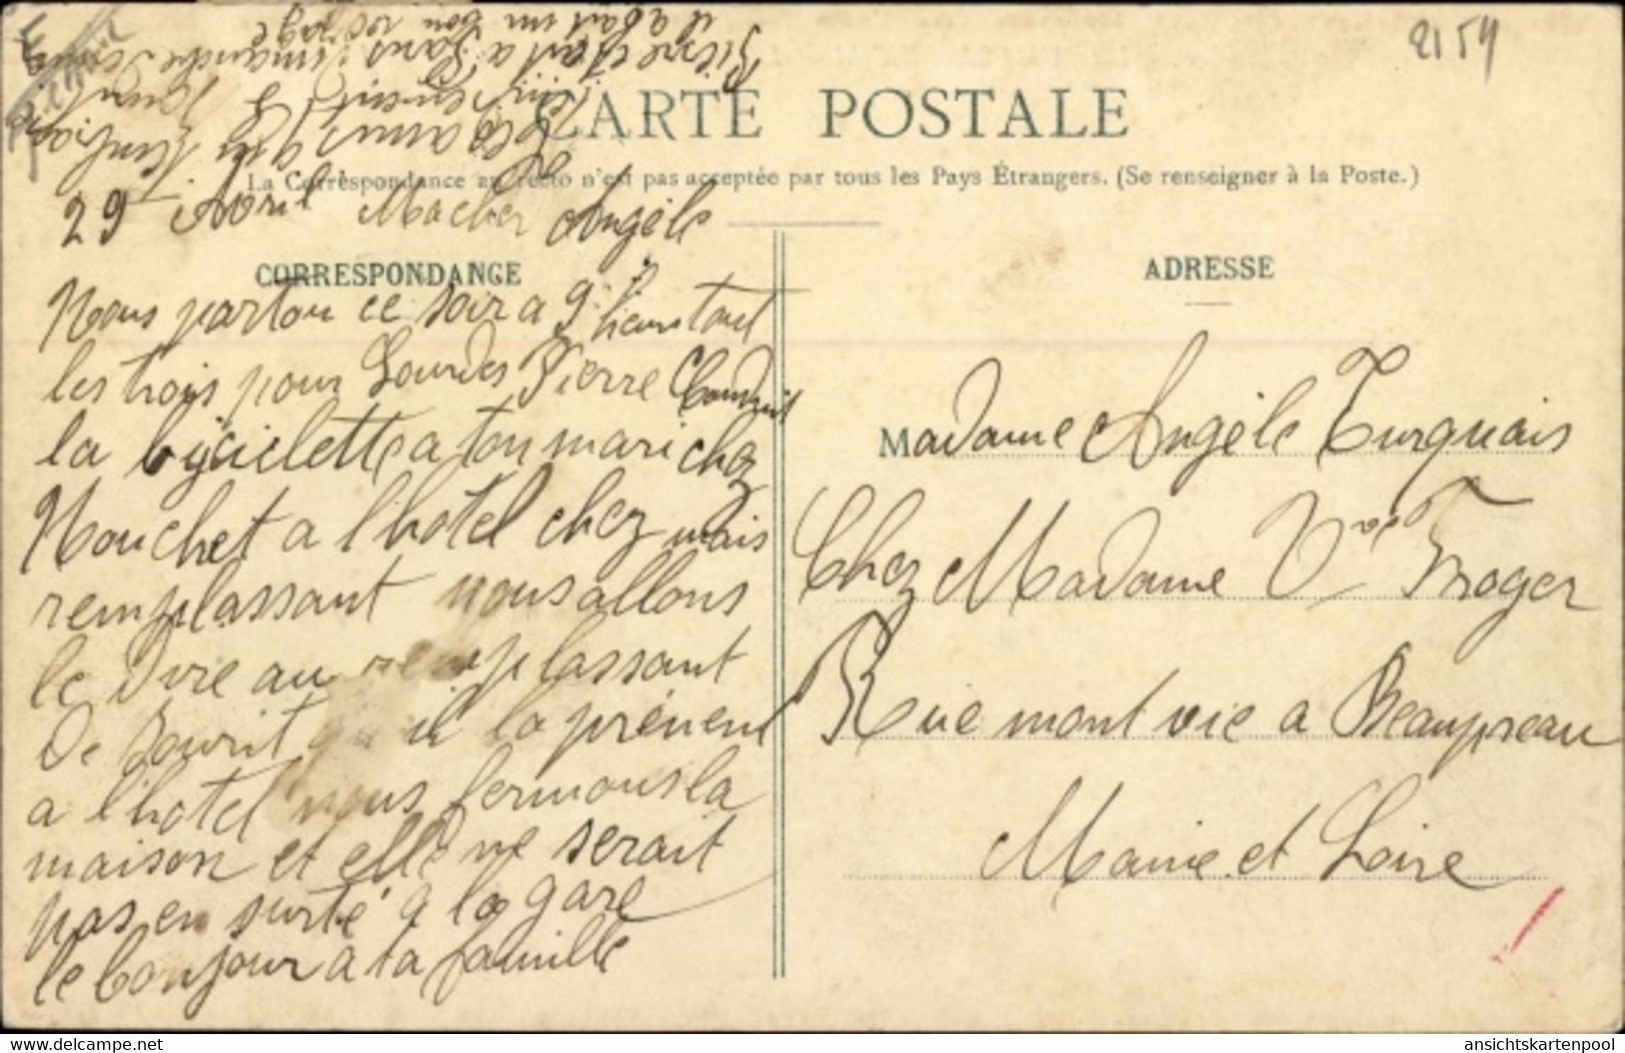 2154
CARTE POSTALE
La Correspondance au recto n'est pas acceptée par tous les Pays Étrangers. (Se renseigner à la Poste.)
29 Avril Ma cher Angèle
CORRESPONDANCE
Nous parton ce soir a 9 heures tout
les trois pour Lourdes Pierre Conduit
la byciclette a ton mari chez
Mouchet a l'hotel chez mais
remplassant nous allons
le dire au remplassant
De Souvrit qu il la prenent
a l'hotel nous fermons la
maison et elle ne serait
pas en surté a la gare
le bonjour a ta famille
Pierre était a Dimanche
il a fait un bon voyage
ADRESSE
Madame Angèle Turquais
Chez Madame Vve Froger
Rue mont vie a Beaupreau
Maine et Loire
ansichtskartenpool.de
ansichtskartenpool